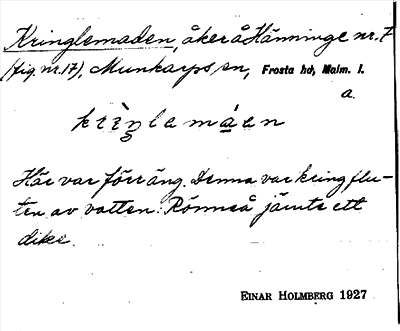 Kringlemaden, åker å Hänninge nr. 7
(fig. nr. 17), Munkarps sn, Frosta hd, Malm. l.
a.
kriŋlemáen
Här var förr äng. Denna var kringflu-
ten av vatten: Rönneå jämte ett
dike.
EINAR HOLMBERG 1927